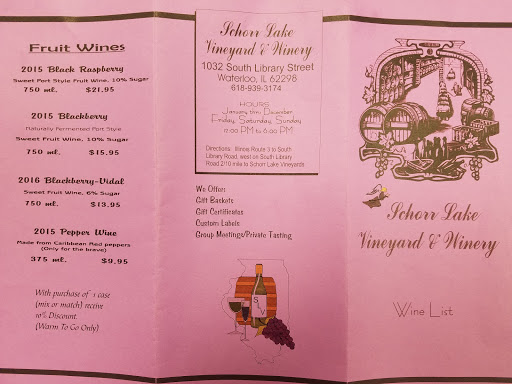 Fruit Wines
2015 Black Raspberry
Sweet Port Style Fruit Wine, 10% Sugar
750 ml. $21.95
2015 Blackberry
Naturally Fermented Port Style
Sweet Fruit Wine, 10% Sugar
750 ml. $15.95
2016 Blackberry-Vidal
Sweet Fruit Wine, 6% Sugar
750 ml. $13.95
2015 Pepper Wine
Made from Caribbean Red peppers
(Only for the brave)
375 ml. $9.95
With purchase of 1 case
(mix or match) receive
10% Discount.
(Warm To Go Only)
Schorr Lake
Vineyard & Winery
1032 South Library Street
Waterloo, IL 62298
618-939-3174
HOURS
January thru December
Friday, Saturday, Sunday
12:00 PM to 6:00 PM
Directions: Illinois Route 3 to South
Library Road, west on South Library
Road 2/10 mile to Schorr Lake Vineyards
We Offer:
Gift Baskets
Gift Certificates
Custom Labels
Group Meetings/Private Tasting
S
L
V
Schorr Lake
Vineyard & Winery
Wine List